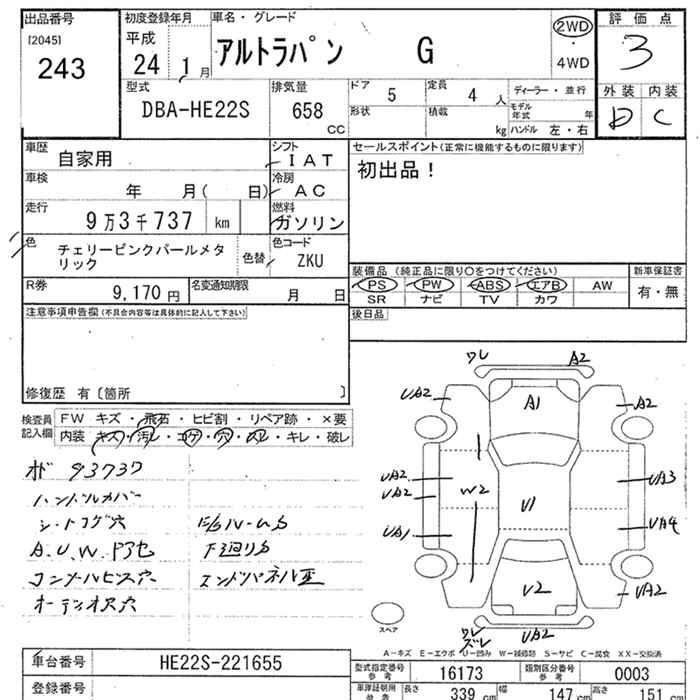 出品番号 初度登録年月 車名・グレード 評価点
[2045] 平成 アルトラパン G 2WD 3
243 24 1月 4WD
型式 排気量 ドア 5 定員 4人 ディーラー・並行 外装 内装
DBA-HE22S 658 CC 形状 積載 kg モデル年式 年 D C
ハンドル 左・右
車歴 自家用 シフト IAT セールスポイント(正常に機能するものに限ります)
車検 年 月( 日) 冷房 AC 初出品!
走行 9万3千737 km 燃料 ガソリン
色 チェリーピンクパールメタリック 色替 色コード ZKU
装備品 (純正品に限り○をつけてください) 新車保証書
R券 9,170円 名変通知期限 月 日 PS PW ABS エアB AW 有・無
SR ナビ TV カワ
注意事項申告欄(不具合内容等は具体的に記入して下さい) 後日品
修復歴 有〔箇所 〕
検査員記入欄 FW キズ・飛石・ヒビ割・リペア跡・×要
内装 キズ・汚レ・コゲ・穴・スレ・キレ・破レ
93737
ハンドルカバー
シートコゲ穴
A.U.W.ドアモ 下廻りS
コンソールビス穴 エンドパネル歪
オーディオス穴
ワレ A2
UA2 A1 A2
UA2 UA3
UA2 W2 U1
UA1 UA4
U2 UA2
スペア ワレ ズレ UA2
A-キズ E-エクボ U-凹み W-補修跡 S-サビ C-腐食 XX-交換済
車台番号 HE22S-221655 型式指定番号 参考 16173 類別区分番号 参考 0003
登録番号 車庫証明用 参考 長さ 339 cm 幅 147 cm 高さ 151 cm